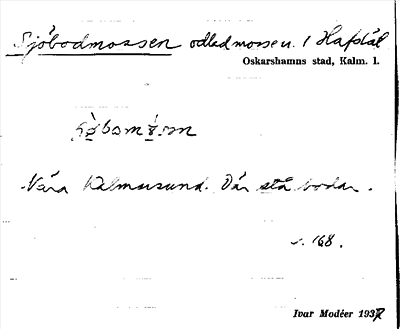 Sjöbodmossen odlad mosse u. 1 Hafdal
Oskarshamns stad, Kalm. l.
Nära Kalmarsund. Där stå bodar.
s. 168.
Ivar Modéer 1937